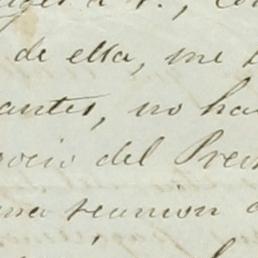 de ella, me
antes, no ha
ocio del Pres
una reunion